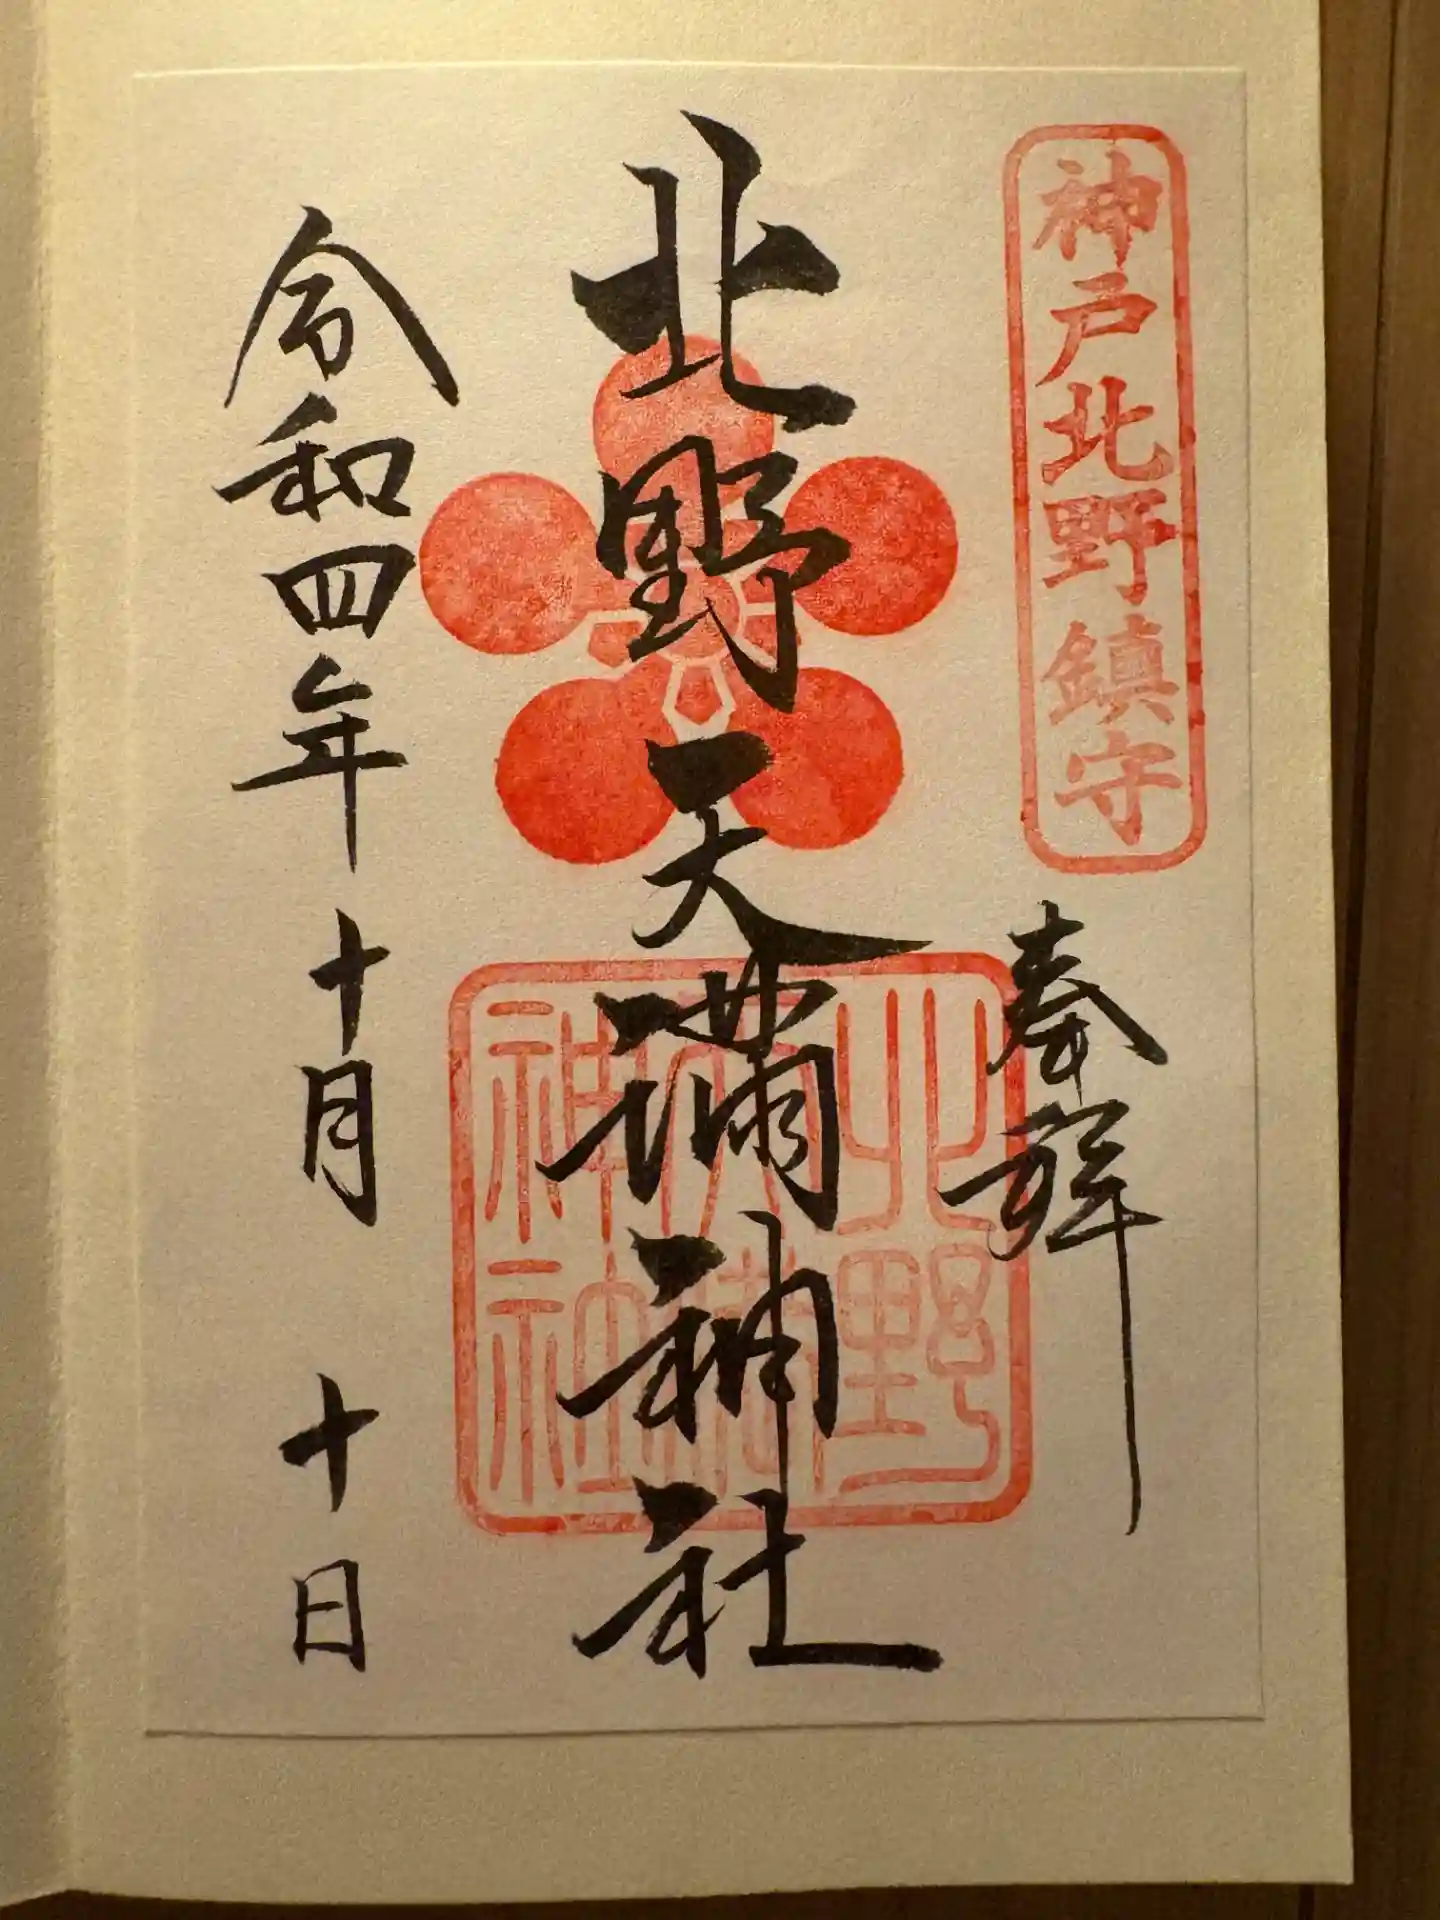 神戸北野鎮守
奉拝
北野天満神社
北野
天満
神社
令和四年十月十日